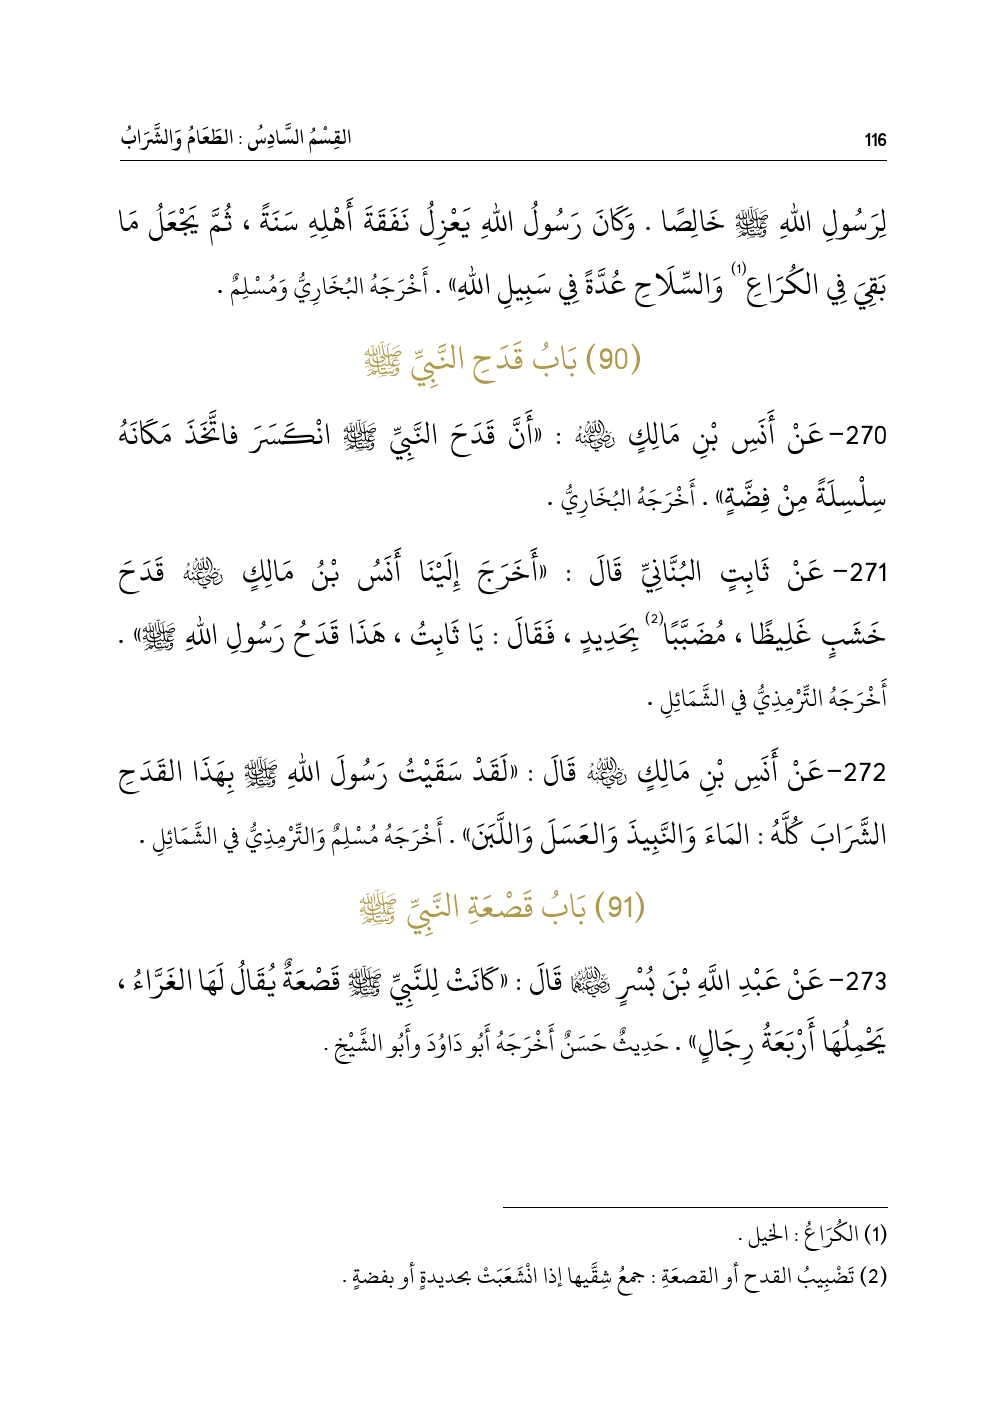 116 القِسْمُ السَّادِسُ : الطَعَامُ وَالشَّرَابُ
لِرَسُولِ اللهِ ﷺ خَالِصًا . وَكَانَ رَسُولُ اللهِ يَعْزِلُ نَفَقَةَ أَهْلِهِ سَنَةً ، ثُمَّ يَجْعَلُ مَا
بَقِيَ فِي الكُرَاعِ(1) وَالسِّلَاحِ عُدَّةً فِي سَبِيلِ اللهِ» . أَخْرَجَهُ البُخَارِيُّ وَمُسْلِمٌ .
(90) بَابُ قَدَحِ النَّبِيِّ ﷺ
270- عَنْ أَنَسِ بْنِ مَالِكٍ رضي الله عنه : «أَنَّ قَدَحَ النَّبِيِّ ﷺ انْكَسَرَ فاتَّخَذَ مَكَانَهُ
سِلْسِلَةً مِنْ فِضَّةٍ» . أَخْرَجَهُ البُخَارِيُّ .
271- عَنْ ثَابِتٍ البُنَّانِيِّ قَالَ : «أَخَرَجَ إِلَيْنَا أَنَسُ بْنُ مَالِكٍ رضي الله عنه قَدَحَ
خَشَبٍ غَلِيظًا ، مُضَبَّبًا(2) بِحَدِيدٍ ، فَقَالَ : يَا ثَابِتُ ، هَذَا قَدَحُ رَسُولِ اللهِ ﷺ» .
أَخْرَجَهُ التِّرْمِذِيُّ في الشَّمَائِلِ .
272- عَنْ أَنَسِ بْنِ مَالِكٍ رضي الله عنه قَالَ : «لَقَدْ سَقَيْتُ رَسُولَ اللهِ ﷺ بِهَذَا القَدَحِ
الشَّرَابَ كُلَّهُ : المَاءَ وَالنَّبِيذَ وَالعَسَلَ وَاللَّبَنَ» . أَخْرَجَهُ مُسْلِمٌ وَالتِّرْمِذِيُّ في الشَّمَائِلِ .
(91) بَابُ قَصْعَةِ النَّبِيِّ ﷺ
273- عَنْ عَبْدِ اللَّهِ بْنَ بُسْرٍ رضي الله عنهما قَالَ : «كَانَتْ لِلنَّبِيِّ ﷺ قَصْعَةٌ يُقَالُ لَهَا الغَرَّاءُ ،
يَحْمِلُهَا أَرْبَعَةُ رِجَالٍ» . حَدِيثٌ حَسَنٌ أَخْرَجَهُ أَبُو دَاوُدَ وأَبُو الشَّيْخِ .
(1) الكُرَاعُ : الخيل .
(2) تَضْبِيبُ القدح أو القصعَةِ : جمعُ شِقَّيها إذا انْشَعَبَتْ بحديدةٍ أو بفضةٍ .